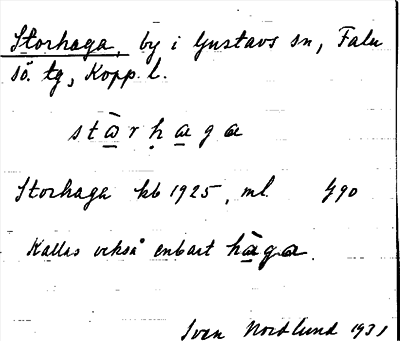 Storhaga, by i Gustavs sn, Falu
sö. tg, Kopp. l.
stòrhaga
Storhaga kb 1925, ml. 490
Kallas också enbart hàga.
Sven Nordlund 1931